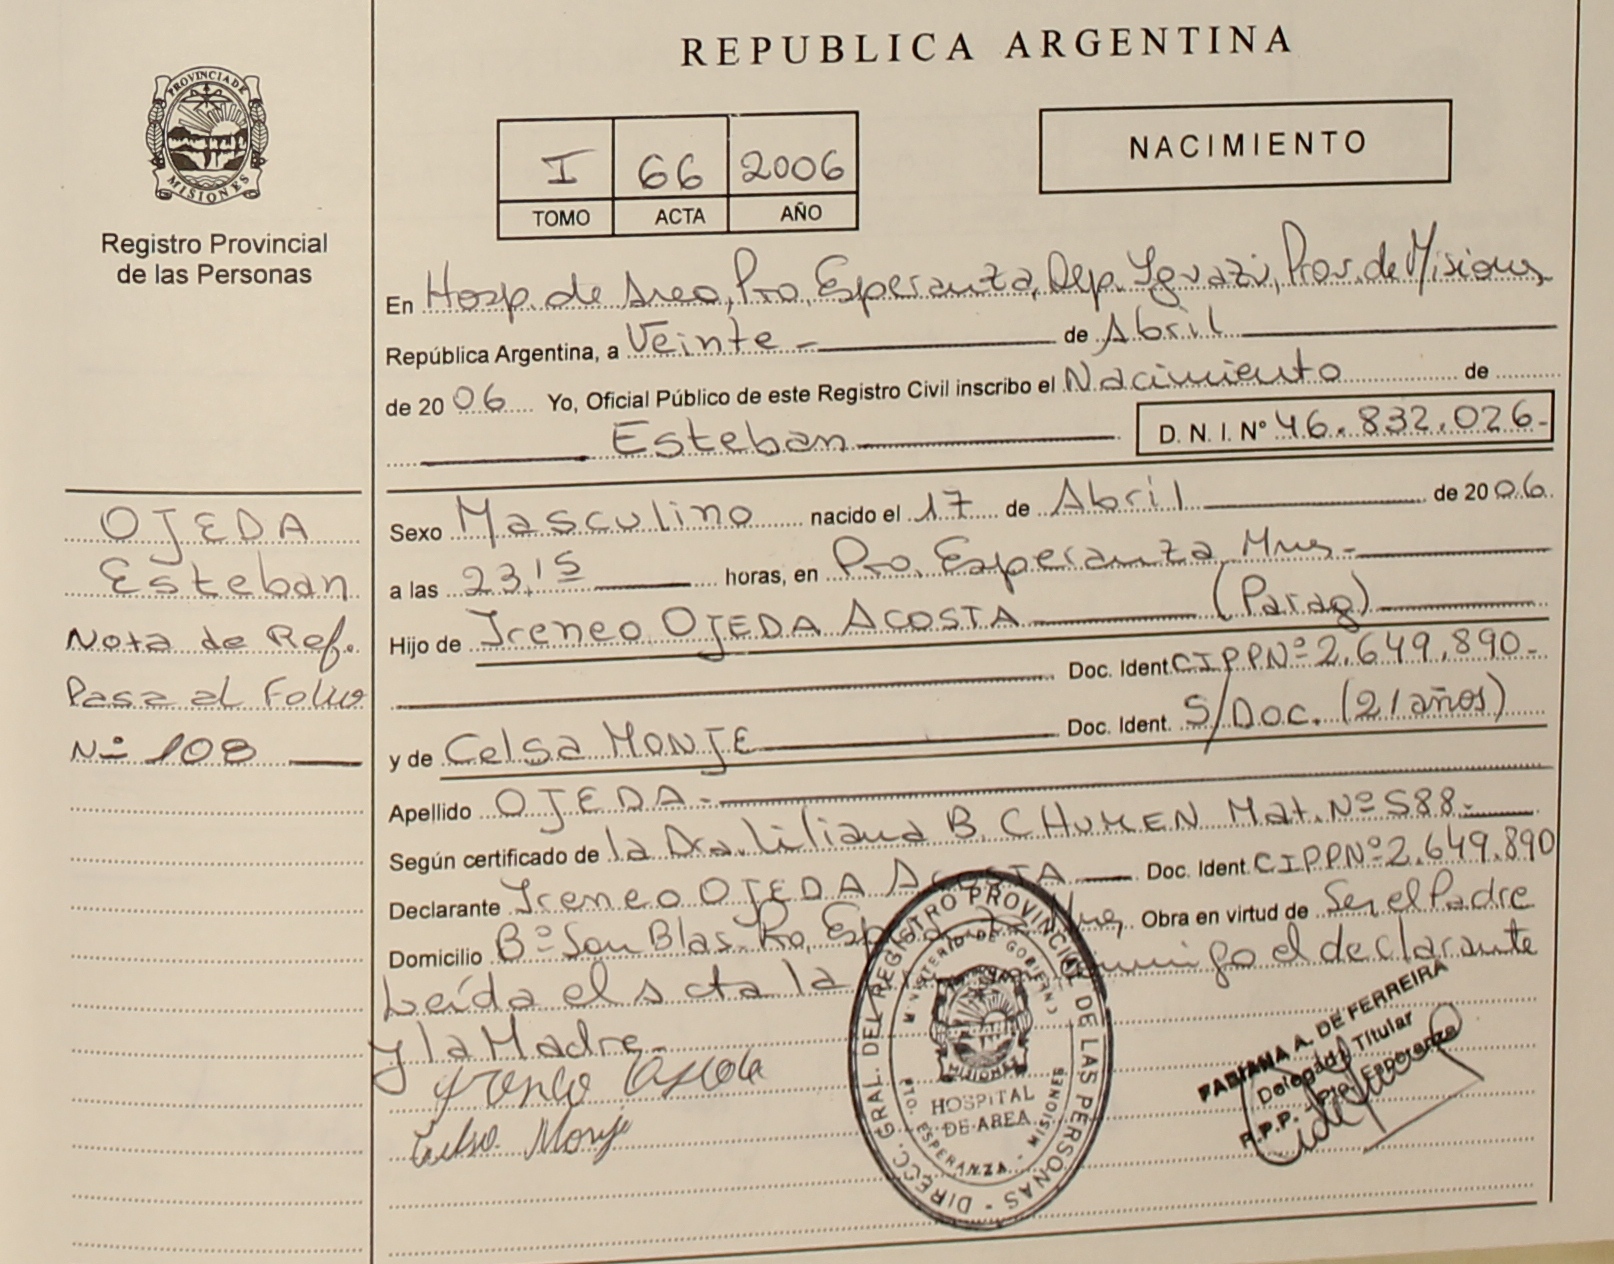 REPUBLICA ARGENTINA
PROVINCIA DE
MISIONES
Registro Provincial
de las Personas
I 66 2006
TOMO ACTA AÑO
NACIMIENTO
En Hosp. de Area, Pto. Esperanza, Dep. Iguazú, Prov. de Misiones
República Argentina, a Veinte - de Abril
de 2006 Yo, Oficial Público de este Registro Civil inscribo el Nacimiento de
Esteban D. N. I. N° 46.832.026-
OJEDA
Esteban
Nota de Ref.
Pasa al Folio
Nº 108
Sexo Masculino nacido el 17 de Abril de 2006
a las 23,15 horas, en Pto. Esperanza, Mnes-
Hijo de Ireneo OJEDA ACOSTA (Parag)
Doc. Ident. CIPPNº 2.649.890-
y de Celsa MONJE Doc. Ident. S/DOC. (21 años)
Apellido OJEDA-
Según certificado de la Dra. Liliana B. CHUMEN Mat. Nº 588-
Declarante Ireneo OJEDA ACOSTA Doc. Ident. CIPPNº 2.649.890
Domicilio Bº San Blas-Pto. Mnes, Obra en virtud de Ser el Padre
Leída el acta la conmigo el declarante
y la Madre-
Celsa Monje
DIRECC. GRAL. DEL REGISTRO PROVINCIAL DE LAS PERSONAS -
MINISTERIO DE GOBIERNO
MISIONES
HOSPITAL
DE AREA
PTO. ESPERANZA - MISIONES
FABIANA A. DE FERREIRA
Delegada Titular
R.P.P. - Pto. Esperanza